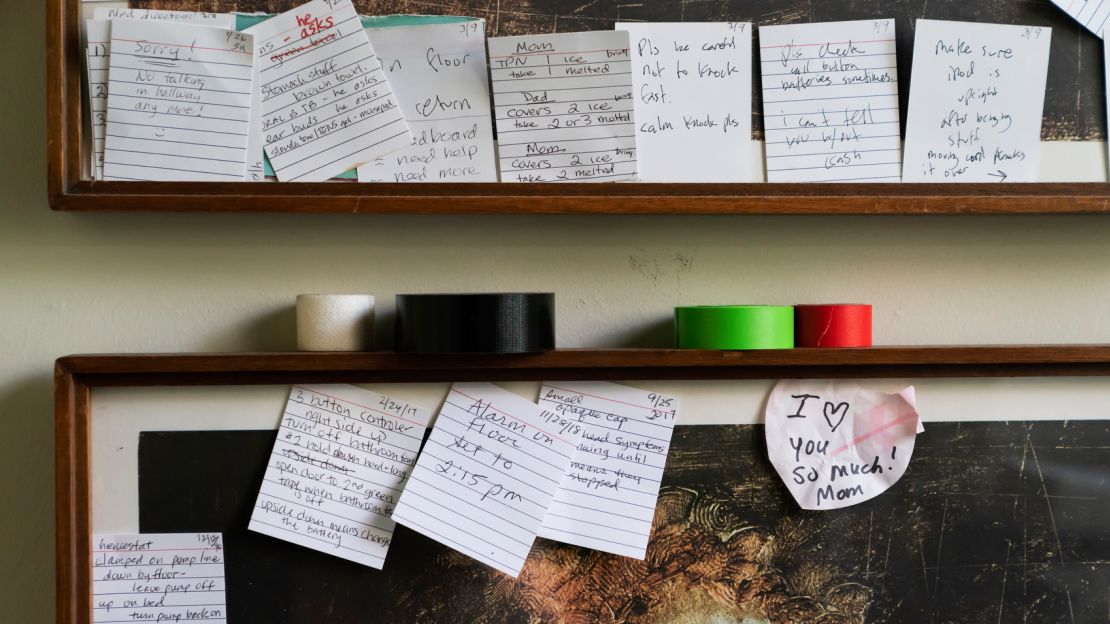 Sorry!
No talking
in hallway
any more!
he
asks
stomach stuff
brown towel
he asks
ear buds - he asks
3/9
floor
return
need help
need more
Mom
TPN 1 ice bring
take 1 melted
Dad
covers 2 ice bring
take 2 or 3 melted
Mom
covers 2 ice bring
take 2 melted
3/9
Pls be careful
not to knock
fast.
calm knock pls
3/9
pls check
call button
batteries sometimes.
i can't tell
you w/out
crash
3/9
make sure
iPod is
upright
after bringing
stuff
moving cord knocks
it over →
3 button controler 2/24/17
right side up
turn off bathroom
#2 hold down hard + long
upside down
open door to 2nd green
tape when bathroom
is off
upside down means change
the battery
Alarm on
floor
set to
2:15 pm
small 9/25
opaque cap 2017
11/28/18 head symptoms
until
means they
stopped
I ♡
you
so much!
Mom
hemostat
clamped on pump line
down by floor-
leave pump off
up on bed
turn pump back on